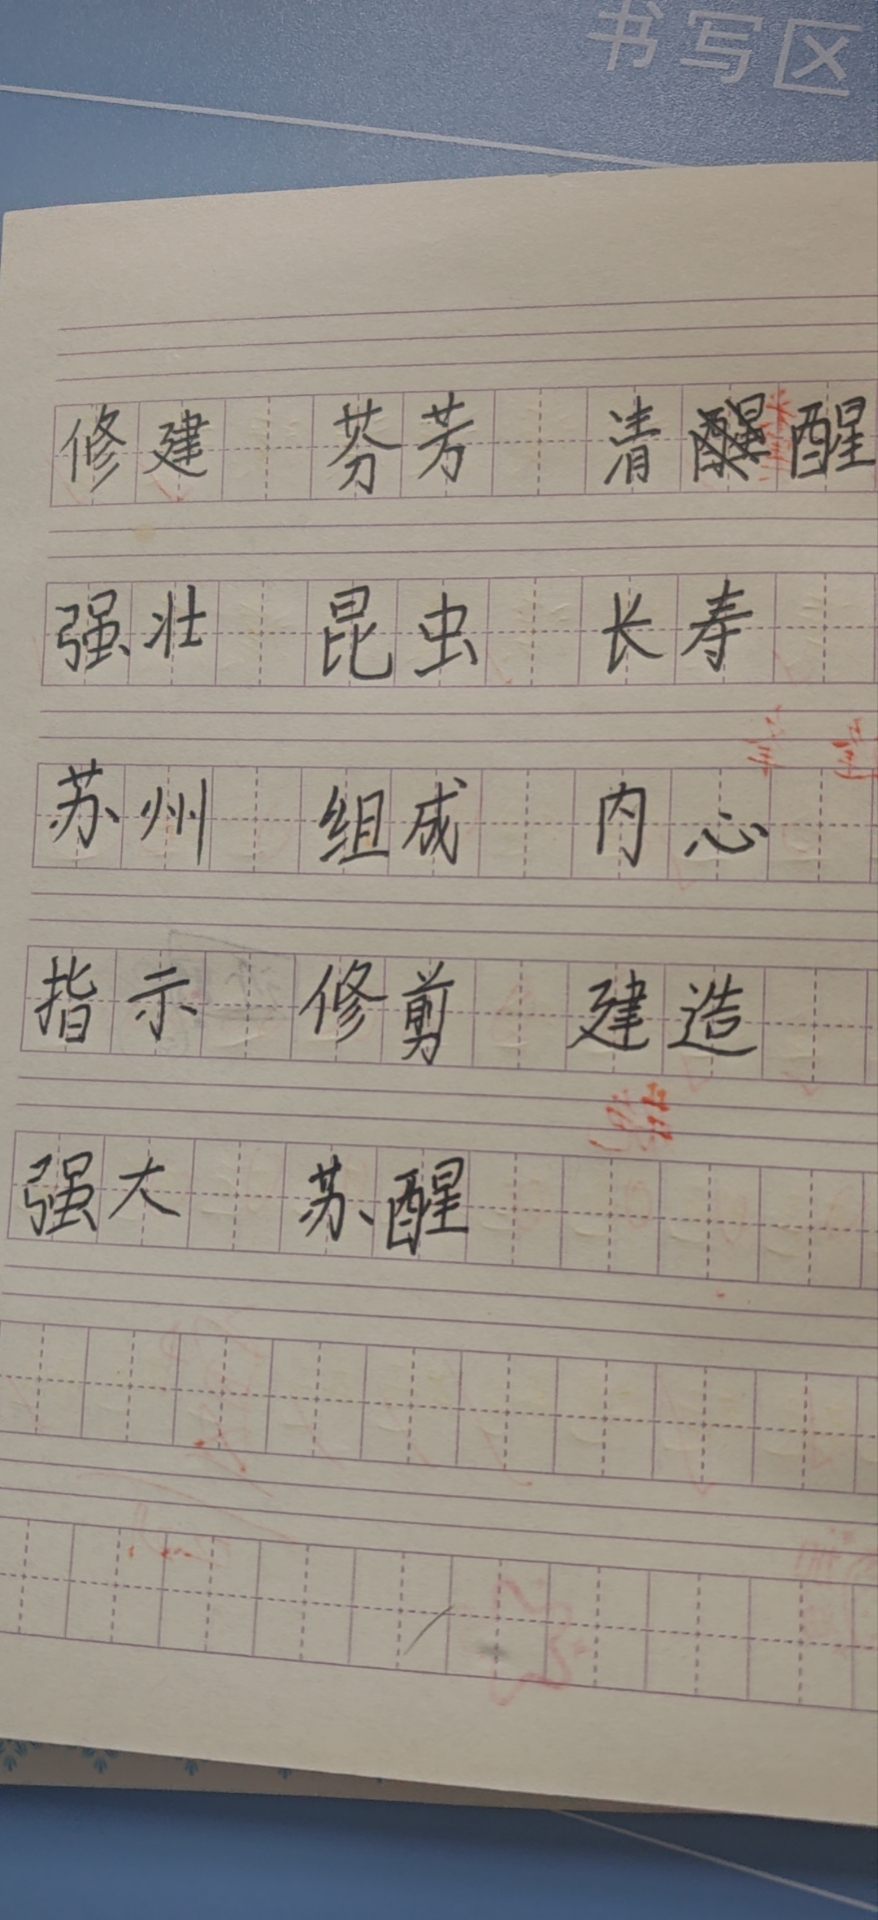 书写区
修建 芬芳 清醒
强壮 昆虫 长寿
苏州 组成 内心
指示 修剪 建造
强大 苏醒